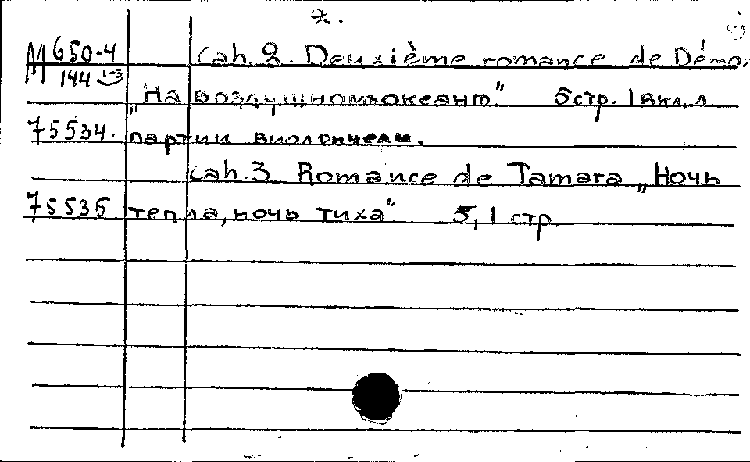 2.
М 650-4 Cah. 2. Deuxième romance de Démo.
144 1-3 „На воздушномъ океанѣ." 5 стр. 1 вкл. л
75534. партии виолончели.
Cah. 3. Romance de Tamara „Ночь
75535 тепла, ночь тиха" 5, 1 стр.